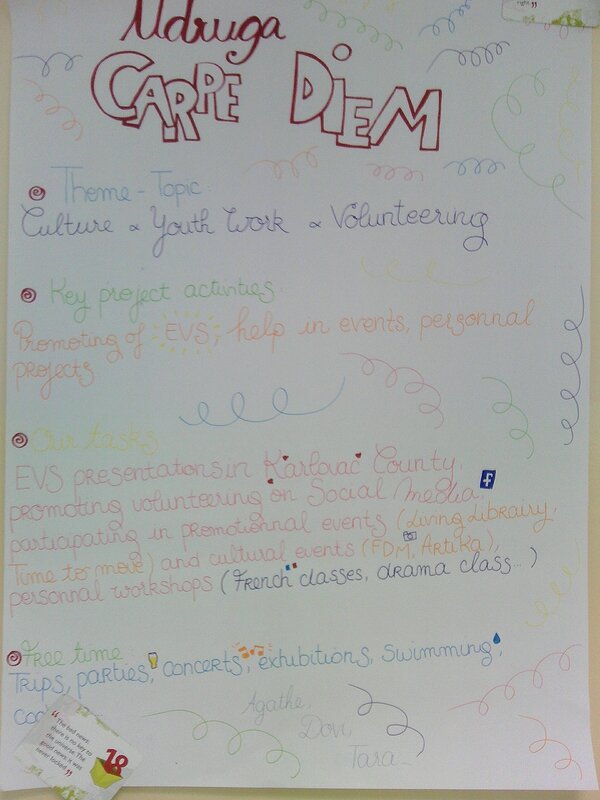 Udruga
CARPE DIEM
Theme - Topic:
Culture & Youth Work & Volunteering
Key project activities
Promoting of EVS, help in events, personnal
projects
Our tasks
EVS presentations in Karlovac County,
promoting volunteering on Social Media,
f
participating in promotionnal events (Living Librairy,
Time to move) and cultural events (FDM, Artika),
personnal workshops (French classes, drama class...)
Free time
Trips, parties, concerts, exhibitions, swimming,
Agathe,
Dovi,
Tara
"The bad news:
there is no key to
the universe. The
good news: it was
never locked."
18